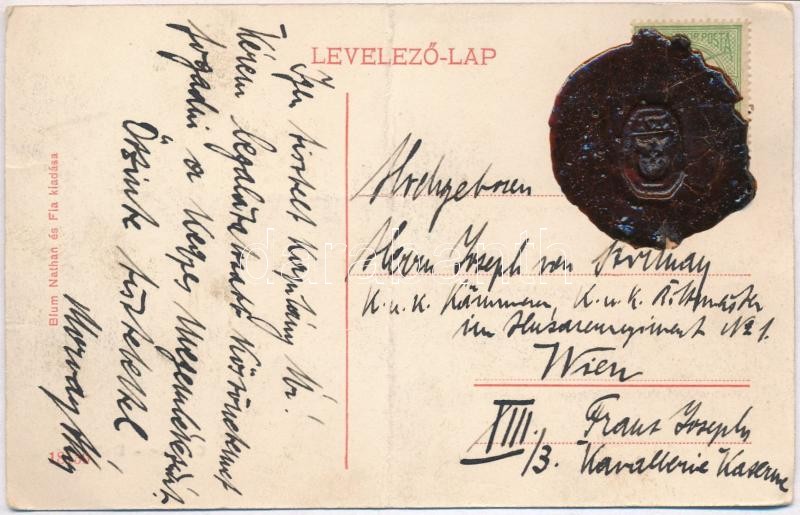 LEVELEZŐ-LAP
Igen tisztelt Kapitány Úr!
Kérem legalázatosabb köszönetemet
fogadni a kegyes megemlékezésért
Őszinte tisztelettel
Blum Nathan és Fia kiadása
POSTA
Hochgeboren
Herrn Joseph von
K. u. K. Kämmerer, K. u. K. Rittmeister
im Husarenregiment No 1.
Wien
XIII/3. Franz Joseph
Kavallerie Kaserne
darabanth